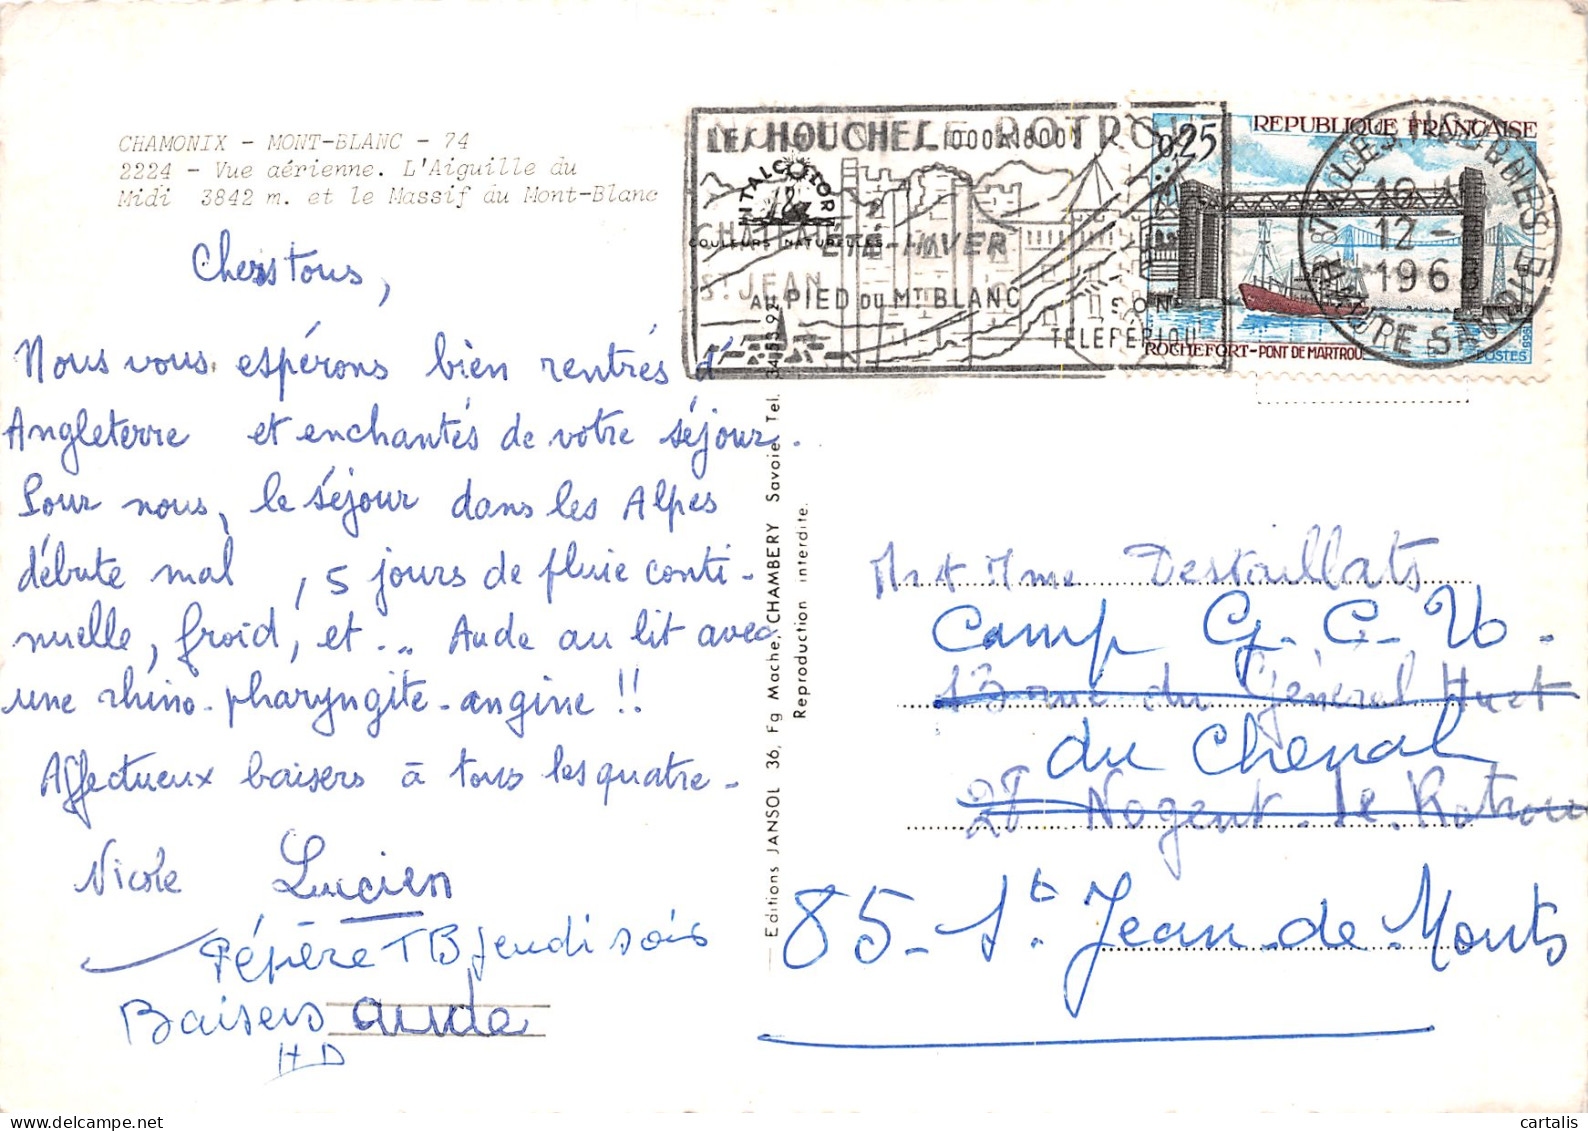 CHAMONIX - MONT-BLANC - 74
2224 - Vue aérienne. L'Aiguille du
Midi 3842 m. et le Massif du Mont-Blanc
Chers tous,
Nous vous espérons bien rentrés d'
Angleterre et enchantés de votre séjour.
Pour nous, le séjour dans les Alpes
débute mal, 5 jours de pluie conti-
nuelle, froid, et... Aude au lit avec
une rhino-pharyngite-angine !!
Affectueux baisers à tous les quatre-
Nicole Lucien
Pépère TB jeudi soir
Baisers aude
HD
Editions JANSOL 36, Fg Maché, CHAMBERY Savoie Tel. 34-59-92
Reproduction interdite.
INTALCOLOR
COULEURS NATURELLES
LES HOUCHES 1000 1800
ÉTÉ-HIVER
AU PIED DU MT BLANC
TÉLÉFÉRIQU
CHATEAU
ST JEAN
SON
0,25
REPUBLIQUE FRANÇAISE
ROCHEFORT-PONT DE MARTROU
POSTES
12 -
196
Mr et Mme Destaillats
Camp G.C.U.
13 rue du Général Huet
du Chenal
28 Nogent-le-Rotrou
85- St. Jean-de-Monts
cartalis